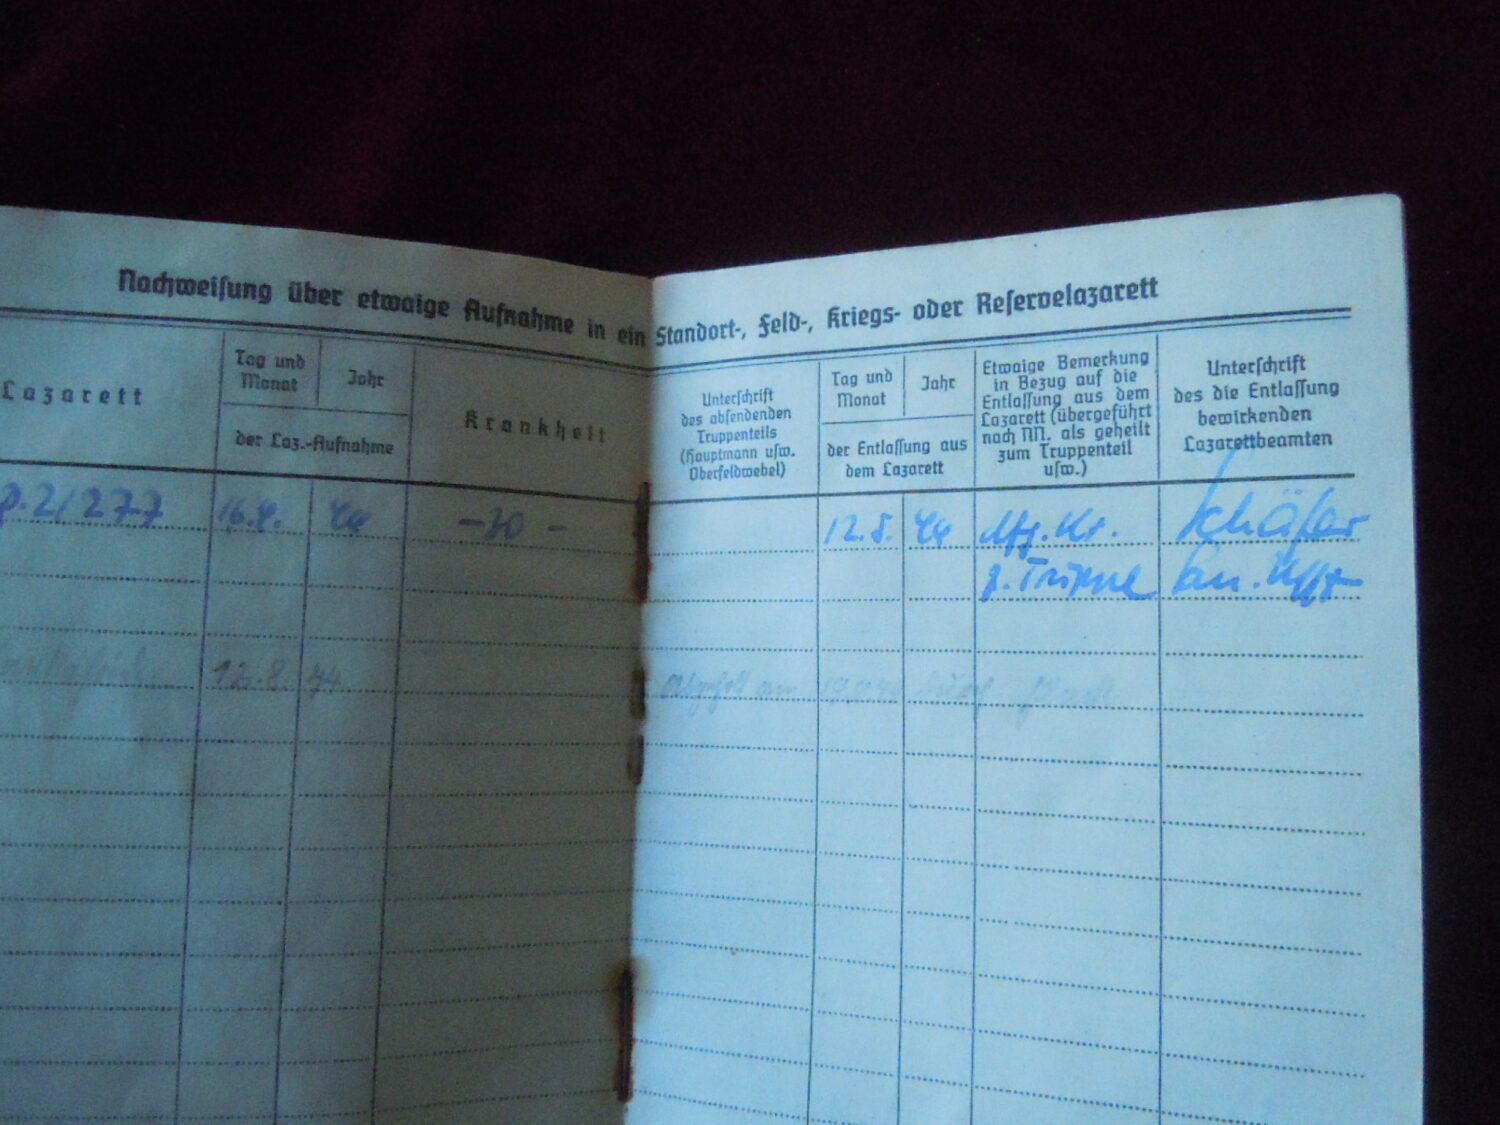 Nachweisung über etwaige Aufnahme in ein Standort-, Feld-, Kriegs- oder Reservelazarett
Lazarett
Tag und
Monat
Jahr
der Laz.-Aufnahme
Krankheit
Unterschrift
des absendenden
Truppenteils
(Hauptmann usw.
Oberfeldwebel)
Tag und
Monat
Jahr
der Entlassung aus
dem Lazarett
Etwaige Bemerkung
in Bezug auf die
Entlassung aus dem
Lazarett (übergeführt
nach NN. als geheilt
zum Truppenteil
usw.)
Unterschrift
des die Entlassung
bewirkenden
Lazarettbeamten
21277 16.4. 44 -30- 12.8. 44 Schäfer
z. Truppe San. Uffz
12.8. 44